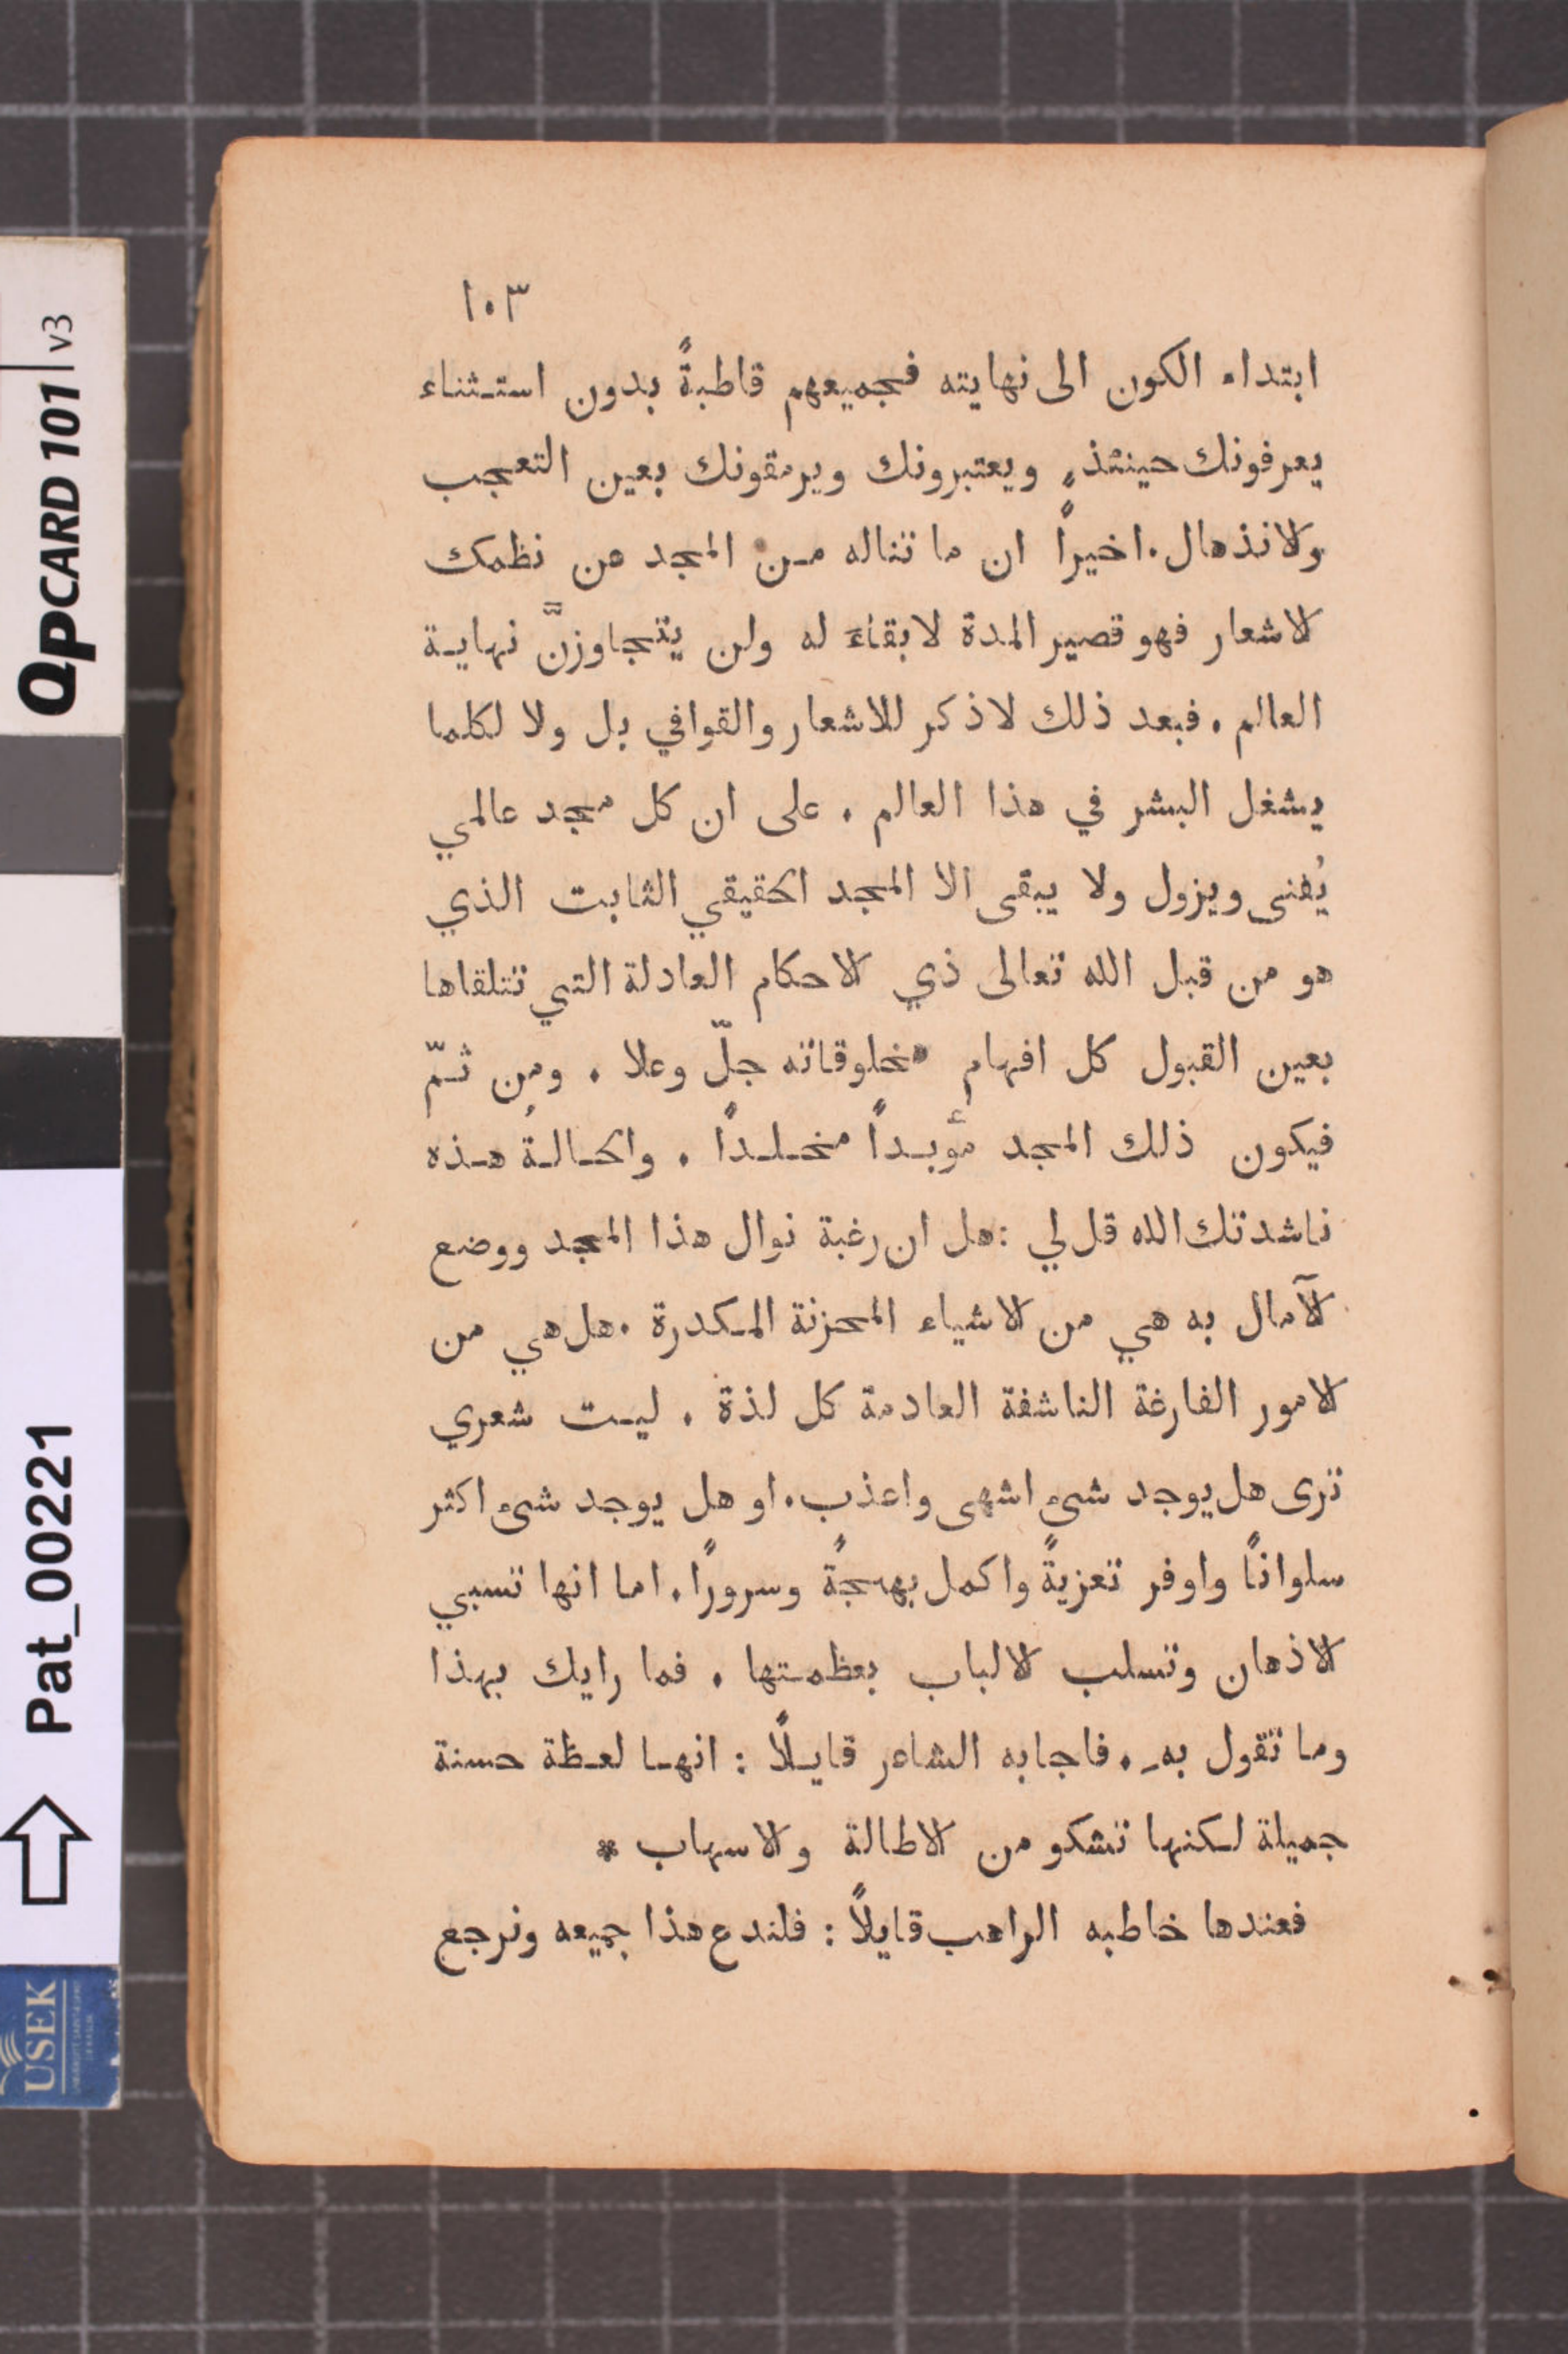 ١٠٣
ابتداء الكون الى نهايته فجميعهم قاطبةً بدون استثناء
يعرفونك حينئذٍ ويعتبرونك ويرمقونك بعين التعجب
ولانذهال. اخيراً ان ما تناله من المجد من نظمك
لاشعار فهو قصير المدة لا بقاءَ له ولن يتجاوزنَّ نهاية
العالم. فبعد ذلك لا ذكر للاشعار والقوافي بل ولا لكلما
يشغل البشر في هذا العالم. على ان كل مجد عالمي
يُفنى ويزول ولا يبقى الا المجد الحقيقي الثابت الذي
هو من قبل الله تعالى ذي لاحكام العادلة التي تتلقاها
بعين القبول كل افهام مخلوقاته جلّ وعلا. ومن ثمّ
فيكون ذلك المجد مؤبداً مخلداً. والحالةُ هذه
ناشدتك الله قل لي: هل ان رغبة نوال هذا المجد ووضع
لآمال به هي من لاشياء المحزنة المكدرة. هل هي من
لامور الفارغة الناشفة العادمة كل لذة. ليت شعري
ترى هل يوجد شيء اشهى واعذب. او هل يوجد شيء اكثر
سلواناً واوفر تعزيةً واكمل بهجةً وسروراً. اما انها تسبي
لاذهان وتسلب لالباب بعظمتها. فما رايك بهذا
وما تقول بهِ. فاجابه الشاعر قايلاً: انها لعظة حسنة
جميلة لكنها تشكو من لاطالة ولاسهاب *
فعندها خاطبه الراهب قايلاً: فلندع هذا جميعه ونرجع
QPCARD 101 v3
Pat_00221
USEK